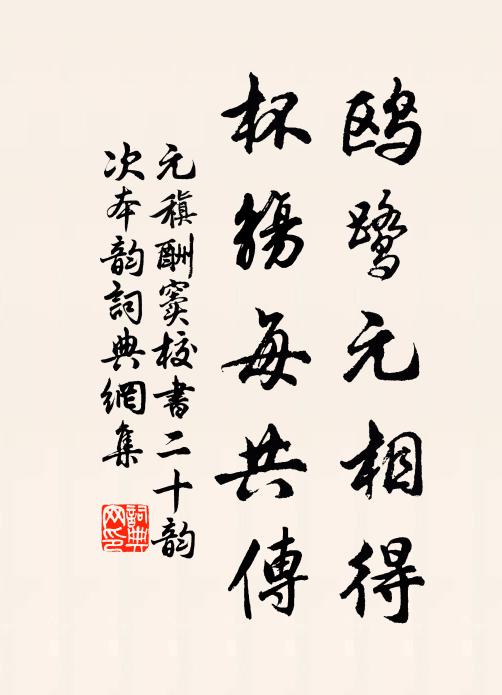 鸥鹭元相得
杯觞每共傳
元稹酬窦校書二十韵
次本韵詞典網集
詞典网印